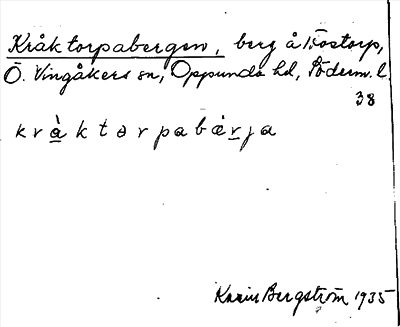 Kråktorpabergen, berg å Kostorp,
Ö. Vingåkers sn, Oppunda hd, Söderm. l.
38
k r à̲ k t o r p a b æ̀ r̲ j a
Karin Bergström 1935